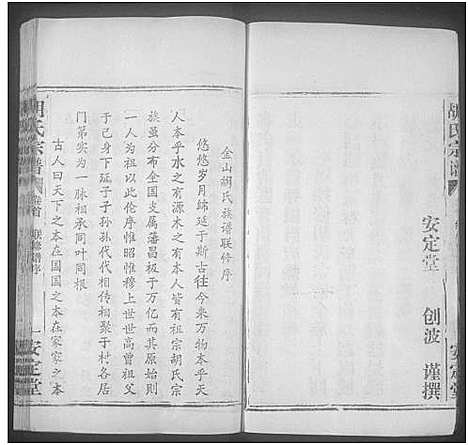 胡氏宗谱
安定堂
创波 谨撰
安定堂
金山胡氏族谱联修序
悠悠岁月绵延于斯古往今来万物本乎天
人本乎水之有源木之有本人皆有祖宗胡氏宗
族虽分布全国支属藩昌极于万亿而其原始则
一人为祖以此伦序惟昭惟穆上世世高曾祖考
于己身下于子孙孙代代相传相聚于村各居
门第实为一脉相承同叶同根
古人曰天下之本在国国之本在家家之本
胡氏宗谱
卷首
联修谱序
一
安定堂